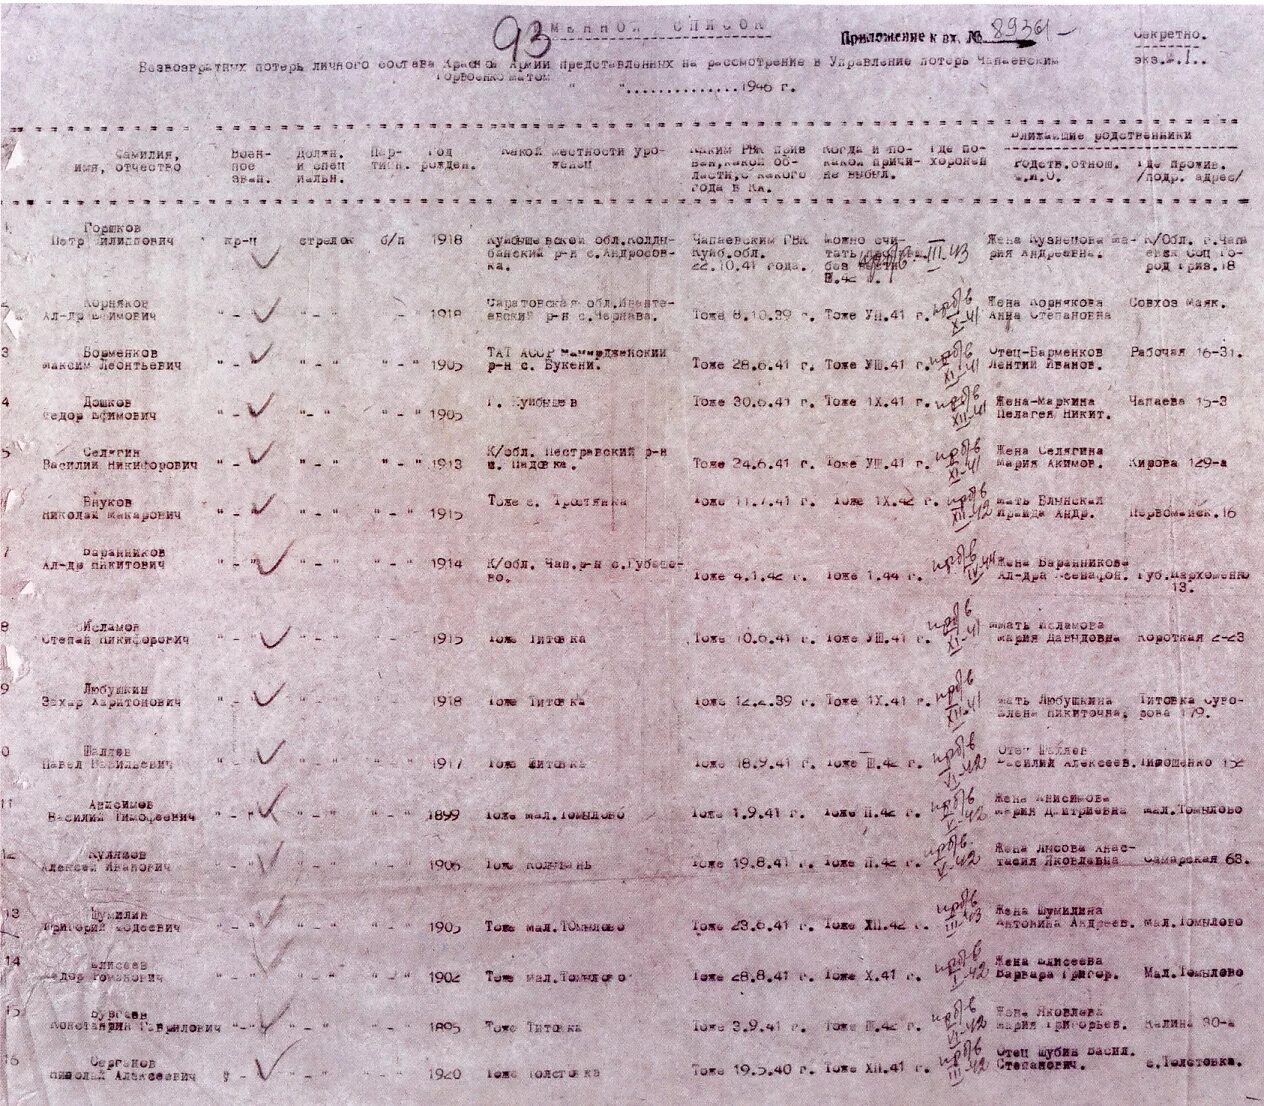 93
ИМЕННОЙ СПИСОК
Приложение к вх. № 89361
Секретно.
экз.№ 1..
Безвозвратных потерь личного состава Красной Армии представленных на рассмотрение в Управление потерь Чапаевским
Горвоенкоматом
" "..............1946 г.
Фамилия, имя, отчество
Воен-ное зван.
Должн. и спец иальн.
Пар-тийн.
Год рожден.
Какой местности уро-женец
Каким РВК приз ван, какой об-ласти, с какого года в КА.
Когда и по-какой причи-не выбыл.
Где по-хоронен
Ближайшие родственники
Родств.отнош. Ф.И.О.
Где прожив. /подр. адрес/
1 Горшков
Петр Филиппович кр-ц стрелок б/п 1918 Куйбышевской обл.Колды-банский р-н с.Андросов-ка. Чапаевским ГВК Куйб.обл. 22.10.41 года. можно счи-тать без вести Ш.42 г. III.43 Жена Кузнецова Ма-рия Андреевна. К/Обл. г.Чапа евск Соц Го-род Гриз.18
2 Корняков
Ал-др Ефимович " - " " - " " - " 1918 Саратовская обл.Иванте-евский р-н с.Чернава. Тоже 8.10.39 г. Тоже УП.41 г. пр б/в X-41 Жена Корнякова Анна Степановна Совхоз Маяк.
3 Борменков
Максим Леонтьевич " - " " - " " - " 1905 ТАТ АССР р-н с. Букени. Тоже 28.6.41 г. Тоже УШ.41 г. пр б/в XI-41 Отец-Барменков Лентий Иванов. Рабочая 16-31.
4 Дошков
Федор Ефимович " - " " - " " - " 1905 Г. Куйбышев Тоже 30.6.41 г. Тоже 1Х.41 г. пр б/в XII-41 Жена-Маркина Пелагея Никит. Чапаева 15-3
5 Селягин
Василий Никифорович " - " " - " " - " 1913 К/обл. Пестравский р-н Тоже 24.6.41 г. Тоже УШ.41 г. пр б/в XI-41 Жена Селягина Мария Акимов. Кирова 129-а
Внуков
Николай Макарович " - " " - " " - " 1915 Тоже с. Тростянка Тоже 11.7.41 г. Тоже 1Х.42 г. пр б/в XII-42 Мать Андр. Первомайск.16
7 Баранников
Ал-др Никитович " - " " - " " - " 1914 К/обл. Чап.р-н с.Губаше-во. Тоже 4.1.42 г. Тоже 1.44 г. пр б/в IV-44 Жена Баранникова Ал-дра Ксенафон. Губ.Пархоменко 13.
8 Исламов
Степан Никифорович " - " " - " " - " 1915 Тоже Титовка Тоже 10.6.41 г. Тоже УШ.41 г. пр б/в XI-41 мать Исламова Мария Давыдовна Короткая 2-23
9 Любушкин
Захар Харитонович " - " " " - " 1918 Тоже Титовка Тоже 12.2.39 г. Тоже 1Х.41 г. пр б/в XII-41 мать Любушкина Елена Никиточна. Титовка Суво-рова 179.
0 Шаляев
Павел Васильевич " - " " - " " - " 1917 Тоже Титовка Тоже 18.9.41 г. Тоже Ш.42 г. пр б/в VI-42 Отец Шаляев Василий Алексеев. Тимошенко 152
11 Анисимов
Василий Тимофеевич " - " " - " " - " 1899 Тоже мал.Томылово Тоже 1.9.41 г. Тоже П.42 г. пр б/в V-42 Жена Анисимова Мария Дмитриевна мал.Томылово
12 Кулявов
Алексей Иванович " - " " - " " - " 1906 Тоже Колывань Тоже 19.8.41 г. Тоже П.42 г. пр б/в V-42 Жена Лысова Анас-тасия Яковлевна Самарская 63.
13 Шумилин
Григорий Фадеевич " - " " - " " - " 1905 Тоже мал.Томылово Тоже 23.6.41 г. Тоже ХП.42 г. пр б/в III-43 Жена Шумилина Антонина Андреев. мал.Томылово
14 Елисеев
Федор Романович " - " " - " " - " 1902 Тоже мал.Томылово Тоже 28.8.41 г. Тоже Х.41 г. пр б/в I-42 Жена Елисеева Варвара Григор. Мал.Томылово
15 Бургаев
Константин Гаврилович " - " " - " " - " 1895 Тоже Титовка Тоже 3.9.41 г. Тоже Ш.42 г. пр б/в VI-42 Жена Яковлева Мария Григорьев. Калина 30-а
16 Серганов
Николай Алексеевич " - " " - " " - " 1920 Тоже Толстовка Тоже 19.5.40 г. Тоже ХП.41 г. пр б/в III-42 Отец Шубин Васил. Степанович. с.Толстовка.